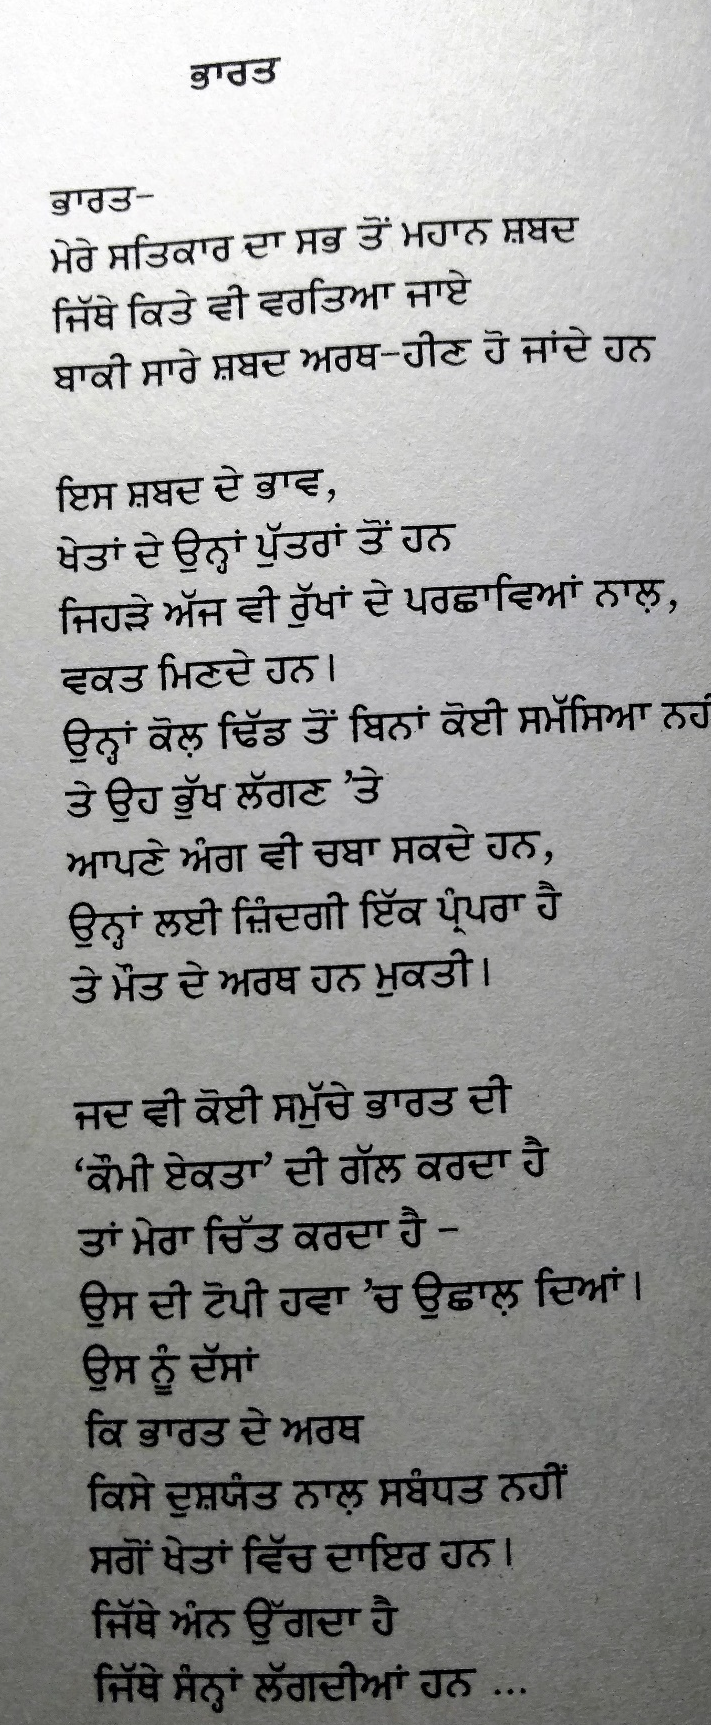 ਭਾਰਤ
ਭਾਰਤ-
ਮੇਰੇ ਸਤਿਕਾਰ ਦਾ ਸਭ ਤੋਂ ਮਹਾਨ ਸ਼ਬਦ
ਜਿੱਥੇ ਕਿਤੇ ਵੀ ਵਰਤਿਆ ਜਾਏ
ਬਾਕੀ ਸਾਰੇ ਸ਼ਬਦ ਅਰਥ-ਹੀਣ ਹੋ ਜਾਂਦੇ ਹਨ
ਇਸ ਸ਼ਬਦ ਦੇ ਭਾਵ,
ਖੇਤਾਂ ਦੇ ਉਨ੍ਹਾਂ ਪੁੱਤਰਾਂ ਤੋਂ ਹਨ
ਜਿਹੜੇ ਅੱਜ ਵੀ ਰੁੱਖਾਂ ਦੇ ਪਰਛਾਵਿਆਂ ਨਾਲ਼,
ਵਕਤ ਮਿਣਦੇ ਹਨ।
ਉਨ੍ਹਾਂ ਕੋਲ਼ ਢਿੱਡ ਤੋਂ ਬਿਨਾਂ ਕੋਈ ਸਮੱਸਿਆ
ਤੇ ਉਹ ਭੁੱਖ ਲੱਗਣ ’ਤੇ
ਆਪਣੇ ਅੰਗ ਵੀ ਚਬਾ ਸਕਦੇ ਹਨ,
ਉਨ੍ਹਾਂ ਲਈ ਜ਼ਿੰਦਗੀ ਇੱਕ ਪ੍ਰੰਪਰਾ ਹੈ
ਤੇ ਮੌਤ ਦੇ ਅਰਥ ਹਨ ਮੁਕਤੀ।
ਜਦ ਵੀ ਕੋਈ ਸਮੁੱਚੇ ਭਾਰਤ ਦੀ
‘ਕੌਮੀ ਏਕਤਾ’ ਦੀ ਗੱਲ ਕਰਦਾ ਹੈ
ਤਾਂ ਮੇਰਾ ਚਿੱਤ ਕਰਦਾ ਹੈ –
ਉਸ ਦੀ ਟੋਪੀ ਹਵਾ ’ਚ ਉਛਾਲ਼ ਦਿਆਂ।
ਉਸ ਨੂੰ ਦੱਸਾਂ
ਕਿ ਭਾਰਤ ਦੇ ਅਰਥ
ਕਿਸੇ ਦੁਸ਼ਯੰਤ ਨਾਲ਼ ਸਬੰਧਤ ਨਹੀਂ
ਸਗੋਂ ਖੇਤਾਂ ਵਿੱਚ ਦਾਇਰ ਹਨ।
ਜਿੱਥੇ ਅੰਨ ਉੱਗਦਾ ਹੈ
ਜਿੱਥੇ ਸੰਨ੍ਹਾਂ ਲੱਗਦੀਆਂ ਹਨ ...